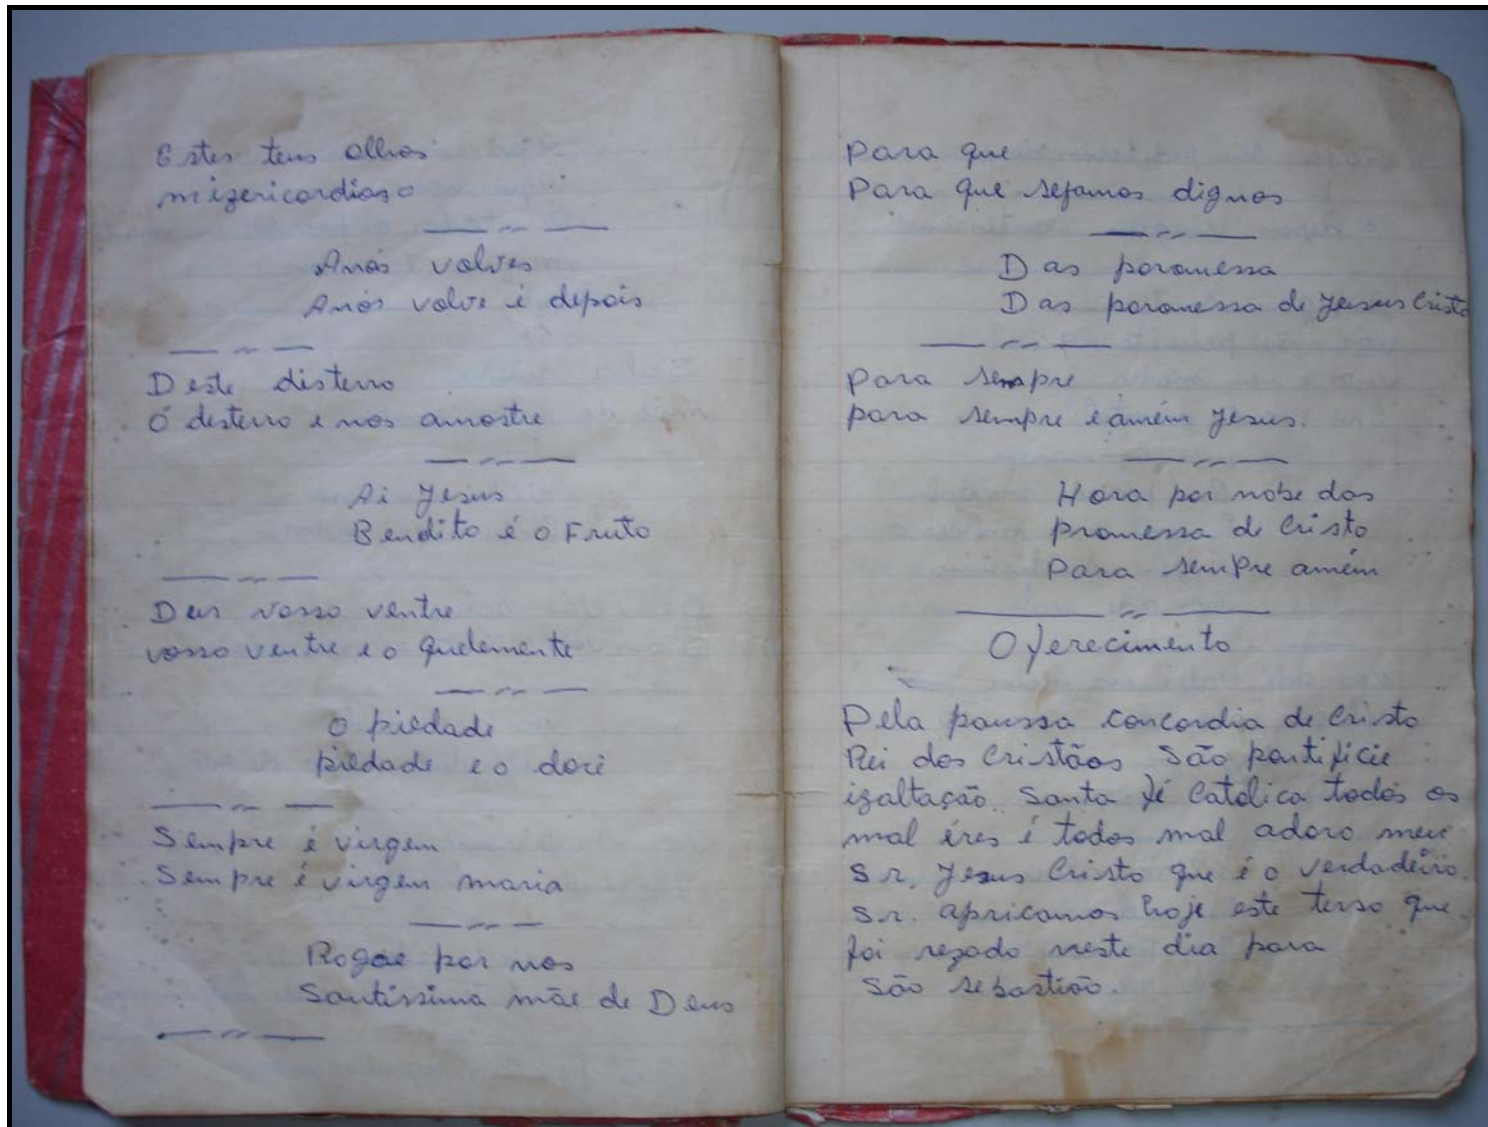 Estes teus olhos
mizericordioso
Anós volves
Anós volve é depois
Deste disterro
Ó desterro e nos amostre
Ai Jesus
Bendito é o Fruto
Deus vosso ventre
vosso ventre e o quelemente
O piedade
piedade e o docê
Sempre é virgem
Sempre é virgem maria
Rogae por nos
Santíssima mãe de Deus
Para que
Para que sejamos dignos
Das poromessa
Das poromessa de Jesus Cristo
para sempre
para sempre e amém Jesus.
Hora por nóbe das
Promessa de Cristo
Para sempre amém
Oferecimento
Pela paussa concordia de Cristo
Rei dos Cristãos São pontificie
izaltação. Santa fé Catolica todos os
mal éres é todos mal adoro meu
Sr. Jesus Cristo que é o verdadeiro
Sr. apricamos hoje este terso que
foi rezado neste dia para
São sebastião.